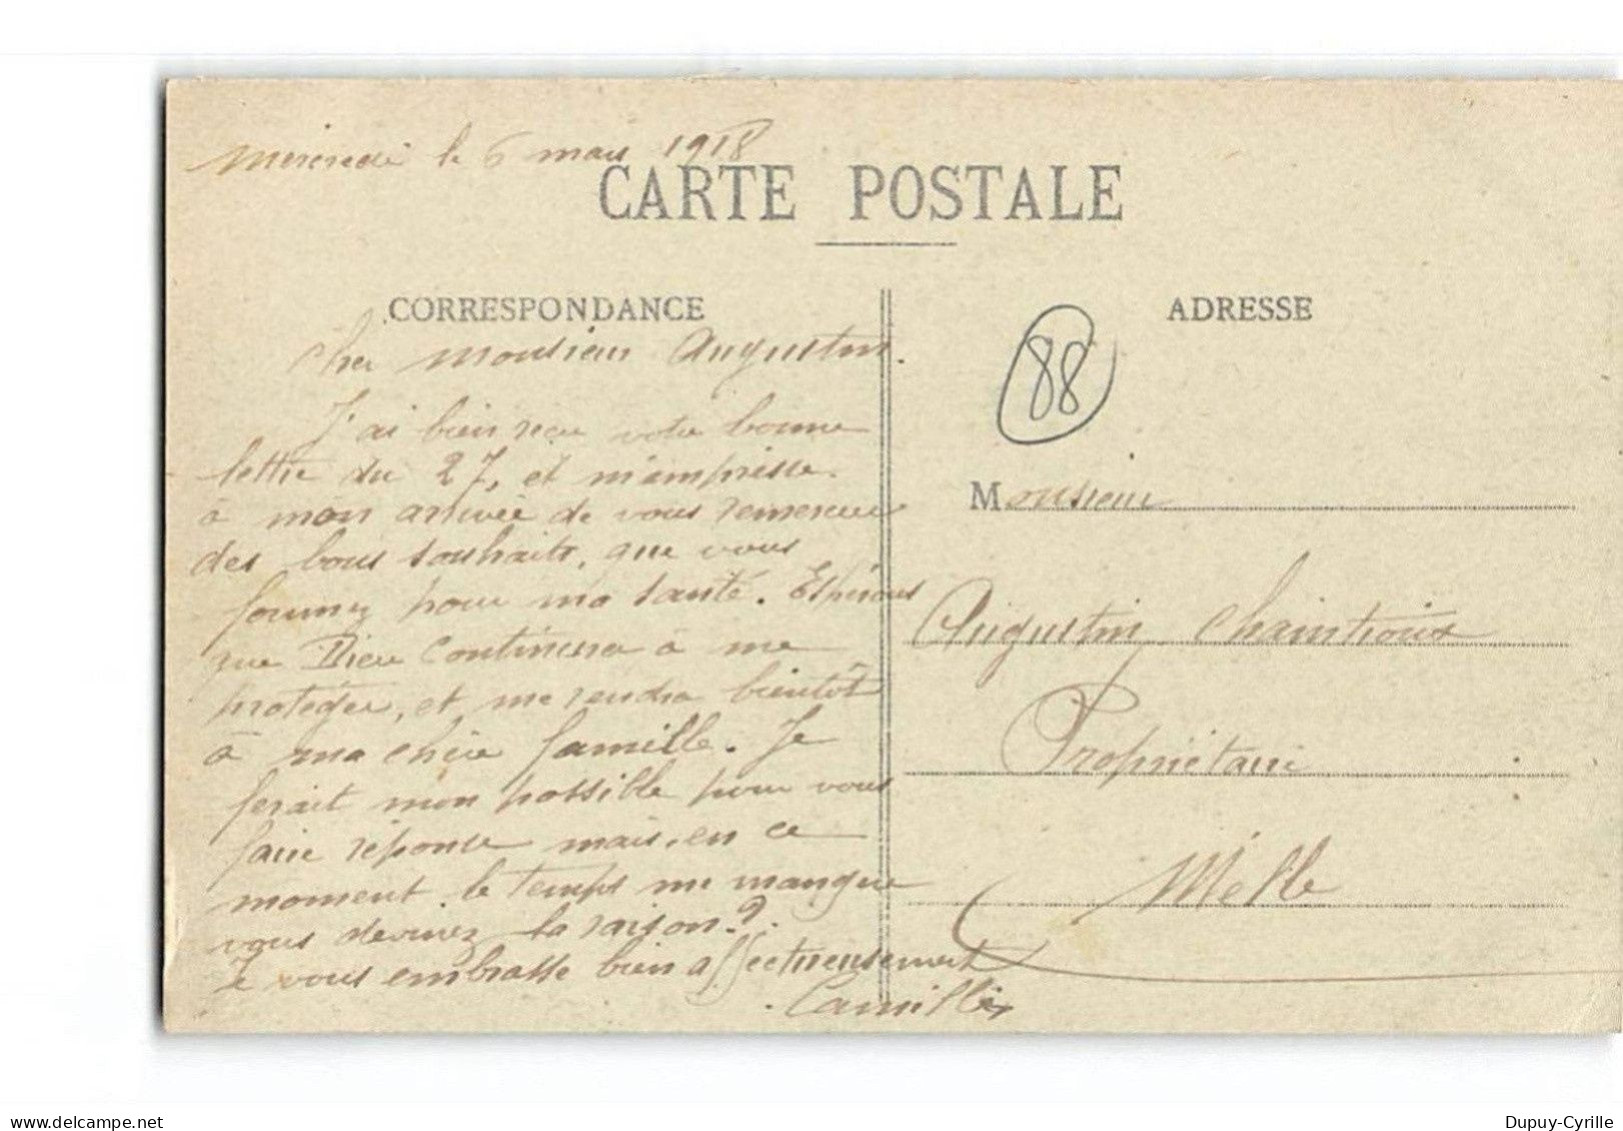 Mercredi le 6 mars 1918
CARTE POSTALE
CORRESPONDANCE
Cher Monsieur Augustin.
J'ai bien reçu votre bonne
lettre du 27, et m'empresse
à mon arrivée de vous remercier
des bons souhaits, que vous
formez pour ma santé. Espérons
que Dieu continuera à me
protéger, et me rendra bientôt
à ma chère famille. Je
ferait mon possible pour vous
faire réponse mais, en ce
moment le temps me manque
vous devinez la raison?.
Je vous embrasse bien affectueusement
Camille
ADRESSE
88
Monsieur
Augustin Chaintrioux
Propriétaire
Melle
delcampe.net
Dupuy-Cyrille